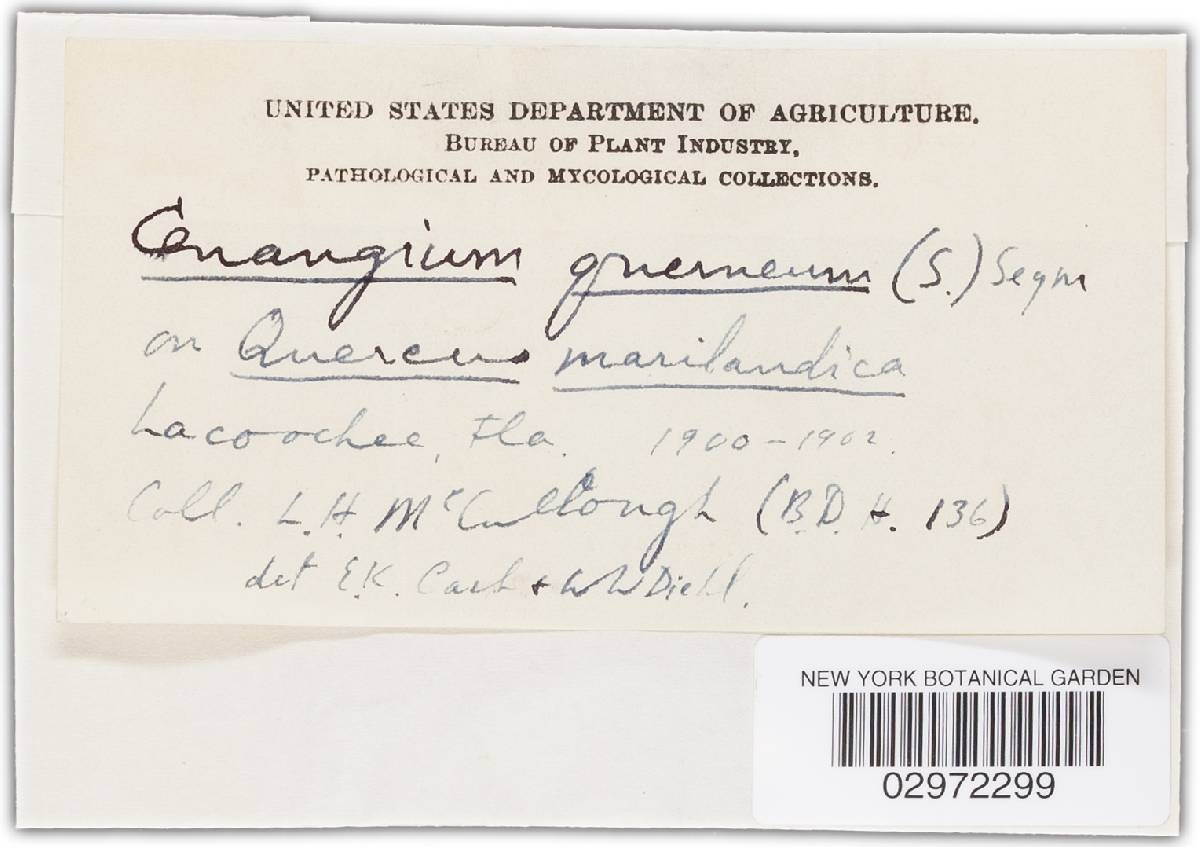 UNITED STATES DEPARTMENT OF AGRICULTURE.
BUREAU OF PLANT INDUSTRY,
PATHOLOGICAL AND MYCOLOGICAL COLLECTIONS.
Cenangium querneum (S.) Seym
on Quercus marilandica
Lacoochee, Fla. 1900-1902.
Coll. L.H. McCullough (B.D.H. 136)
det E.K. Cash + WWDiehl.
NEW YORK BOTANICAL GARDEN
02972299